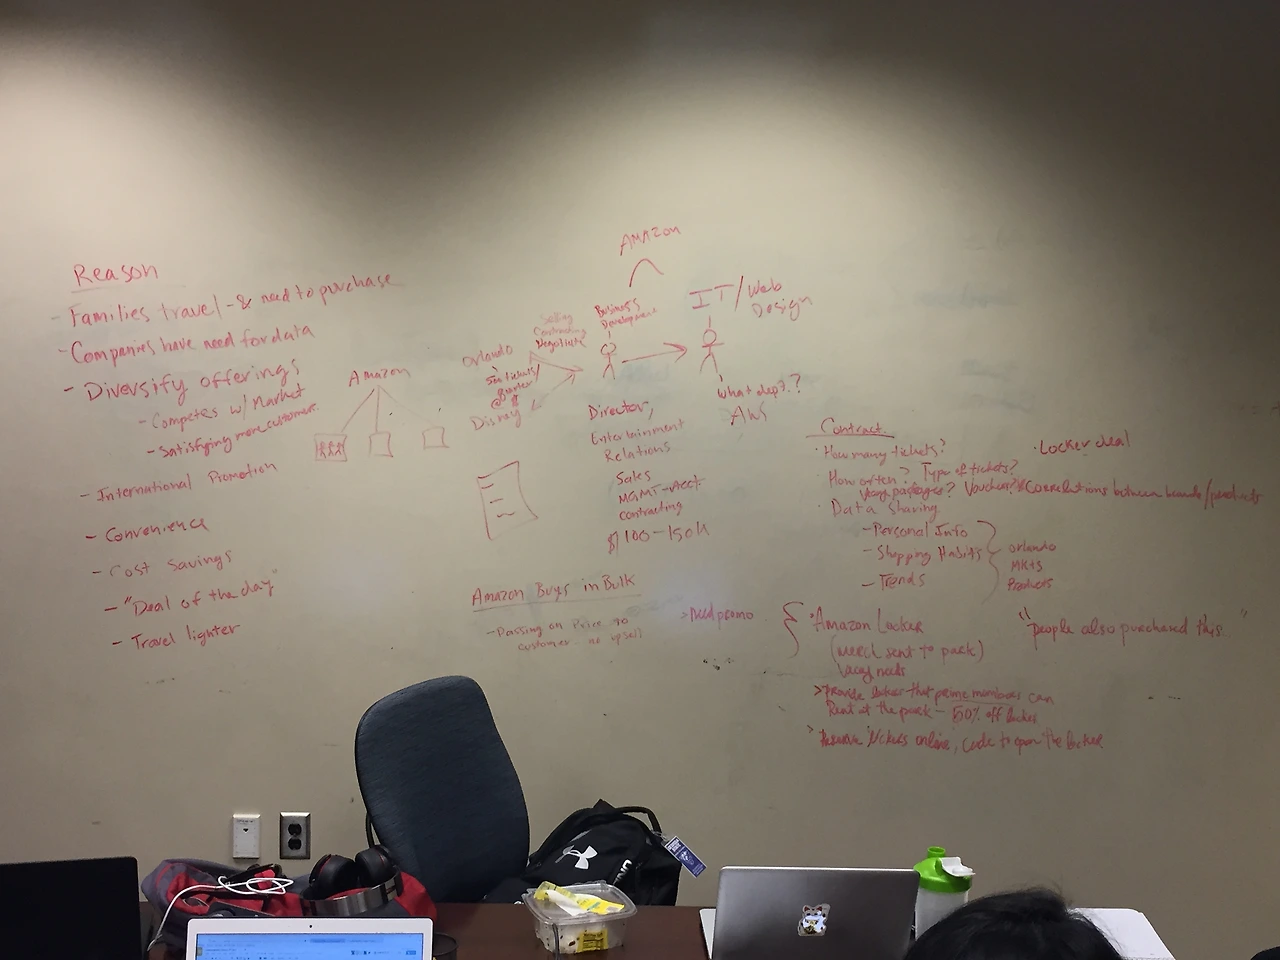 Reason
- Families travel - & need to purchase
- Companies have need for data
- Diversify offerings
- Competes w/ Market
- Satisfying more customers.
- International Promotion
- Convenience
- Cost Savings
- "Deal of the day"
- Travel lighter
Amazon
Orlando
Disney
Selling
Contracting
Negotiate
AMAZON
Business
Development
IT/Web
Design
What dept.?
AWS
Director,
Entertainment
Relations
Sales
MGMT-Acct
Contracting
$100-150k
Amazon Buys in Bulk
- Passing on Price to
customer - no upsell
> Need promo
Contract
• How many tickets?
• How often? Type of tickets?
packages? Voucher?
• Data Sharing
- Personal Info
- Shopping Habits
- Trends
Orlando
MKTS
Products
• Locker deal
* Correlations between brands/products
• Amazon Locker
(Merch sent to park)
"people also purchased this"
> provide locker that prime members can
Rent at the park - 50% off locker
> Reserve lockers online, code to open the locker